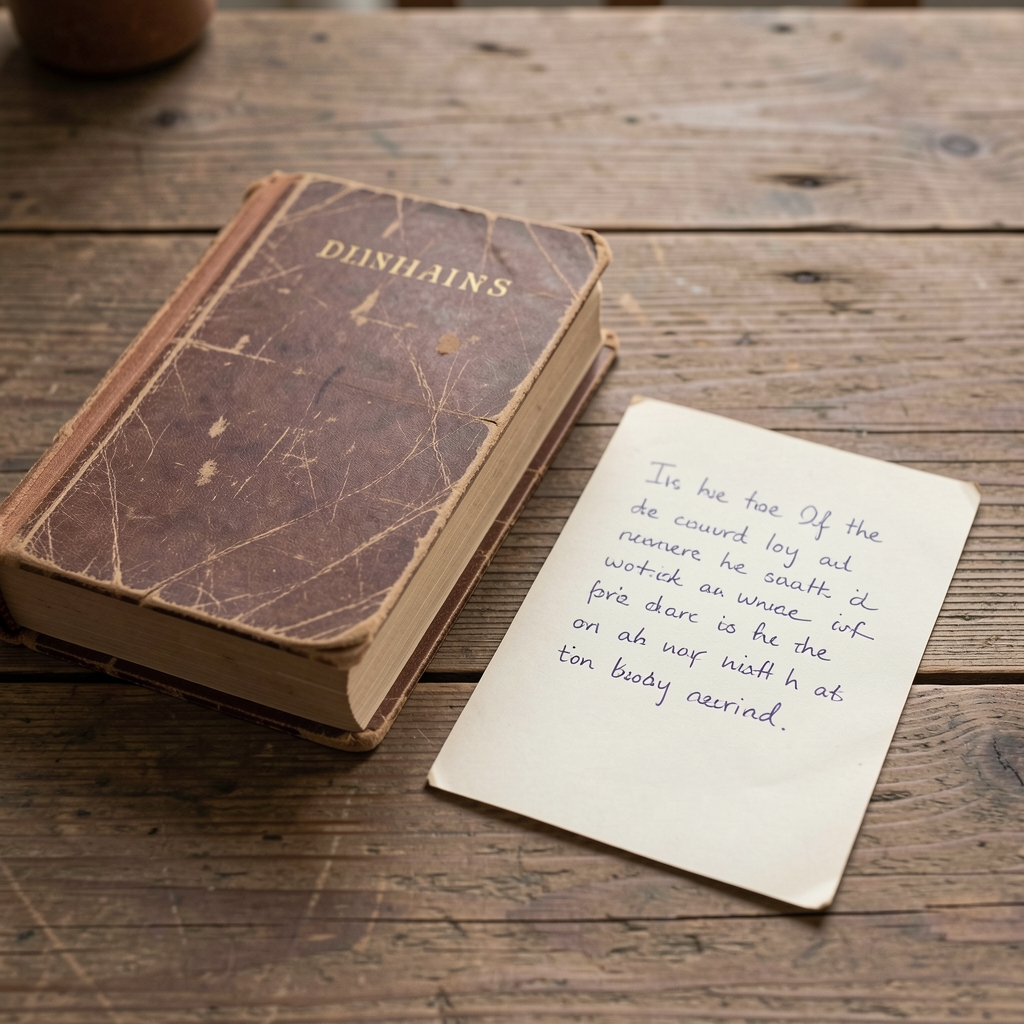 DLINHAINS
Iis hve toe Of the
de couurd loy aul
numere he saatt id
wotick au wnice inf
foric darc is he the
on ab nor nistt h ats
ton booby aeurind.